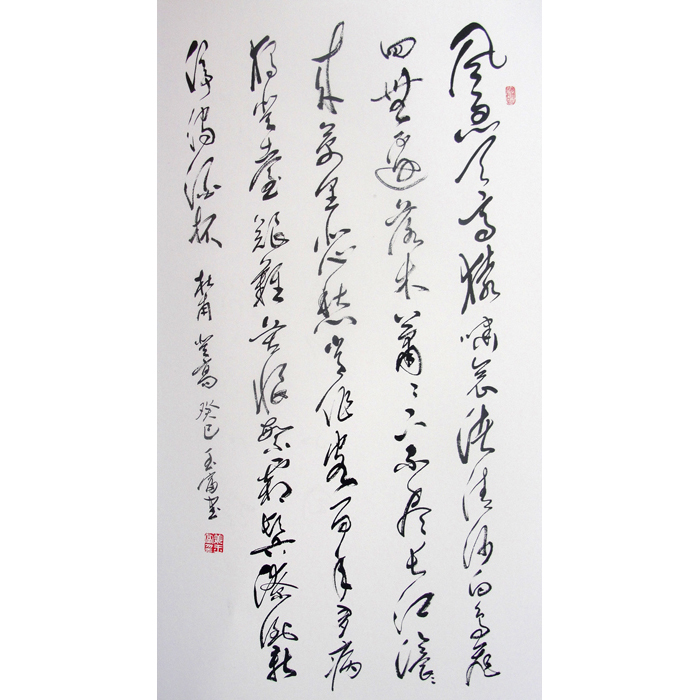 風急天高猿嘯哀渚清沙白鳥飛
回無邊落木蕭々下不盡長江滾々
来萬里悲愁常作客百年多病
獨登臺艱難苦恨繁霜鬢潦倒新
停濁酒杯 杜甫登高 癸巳玉富書